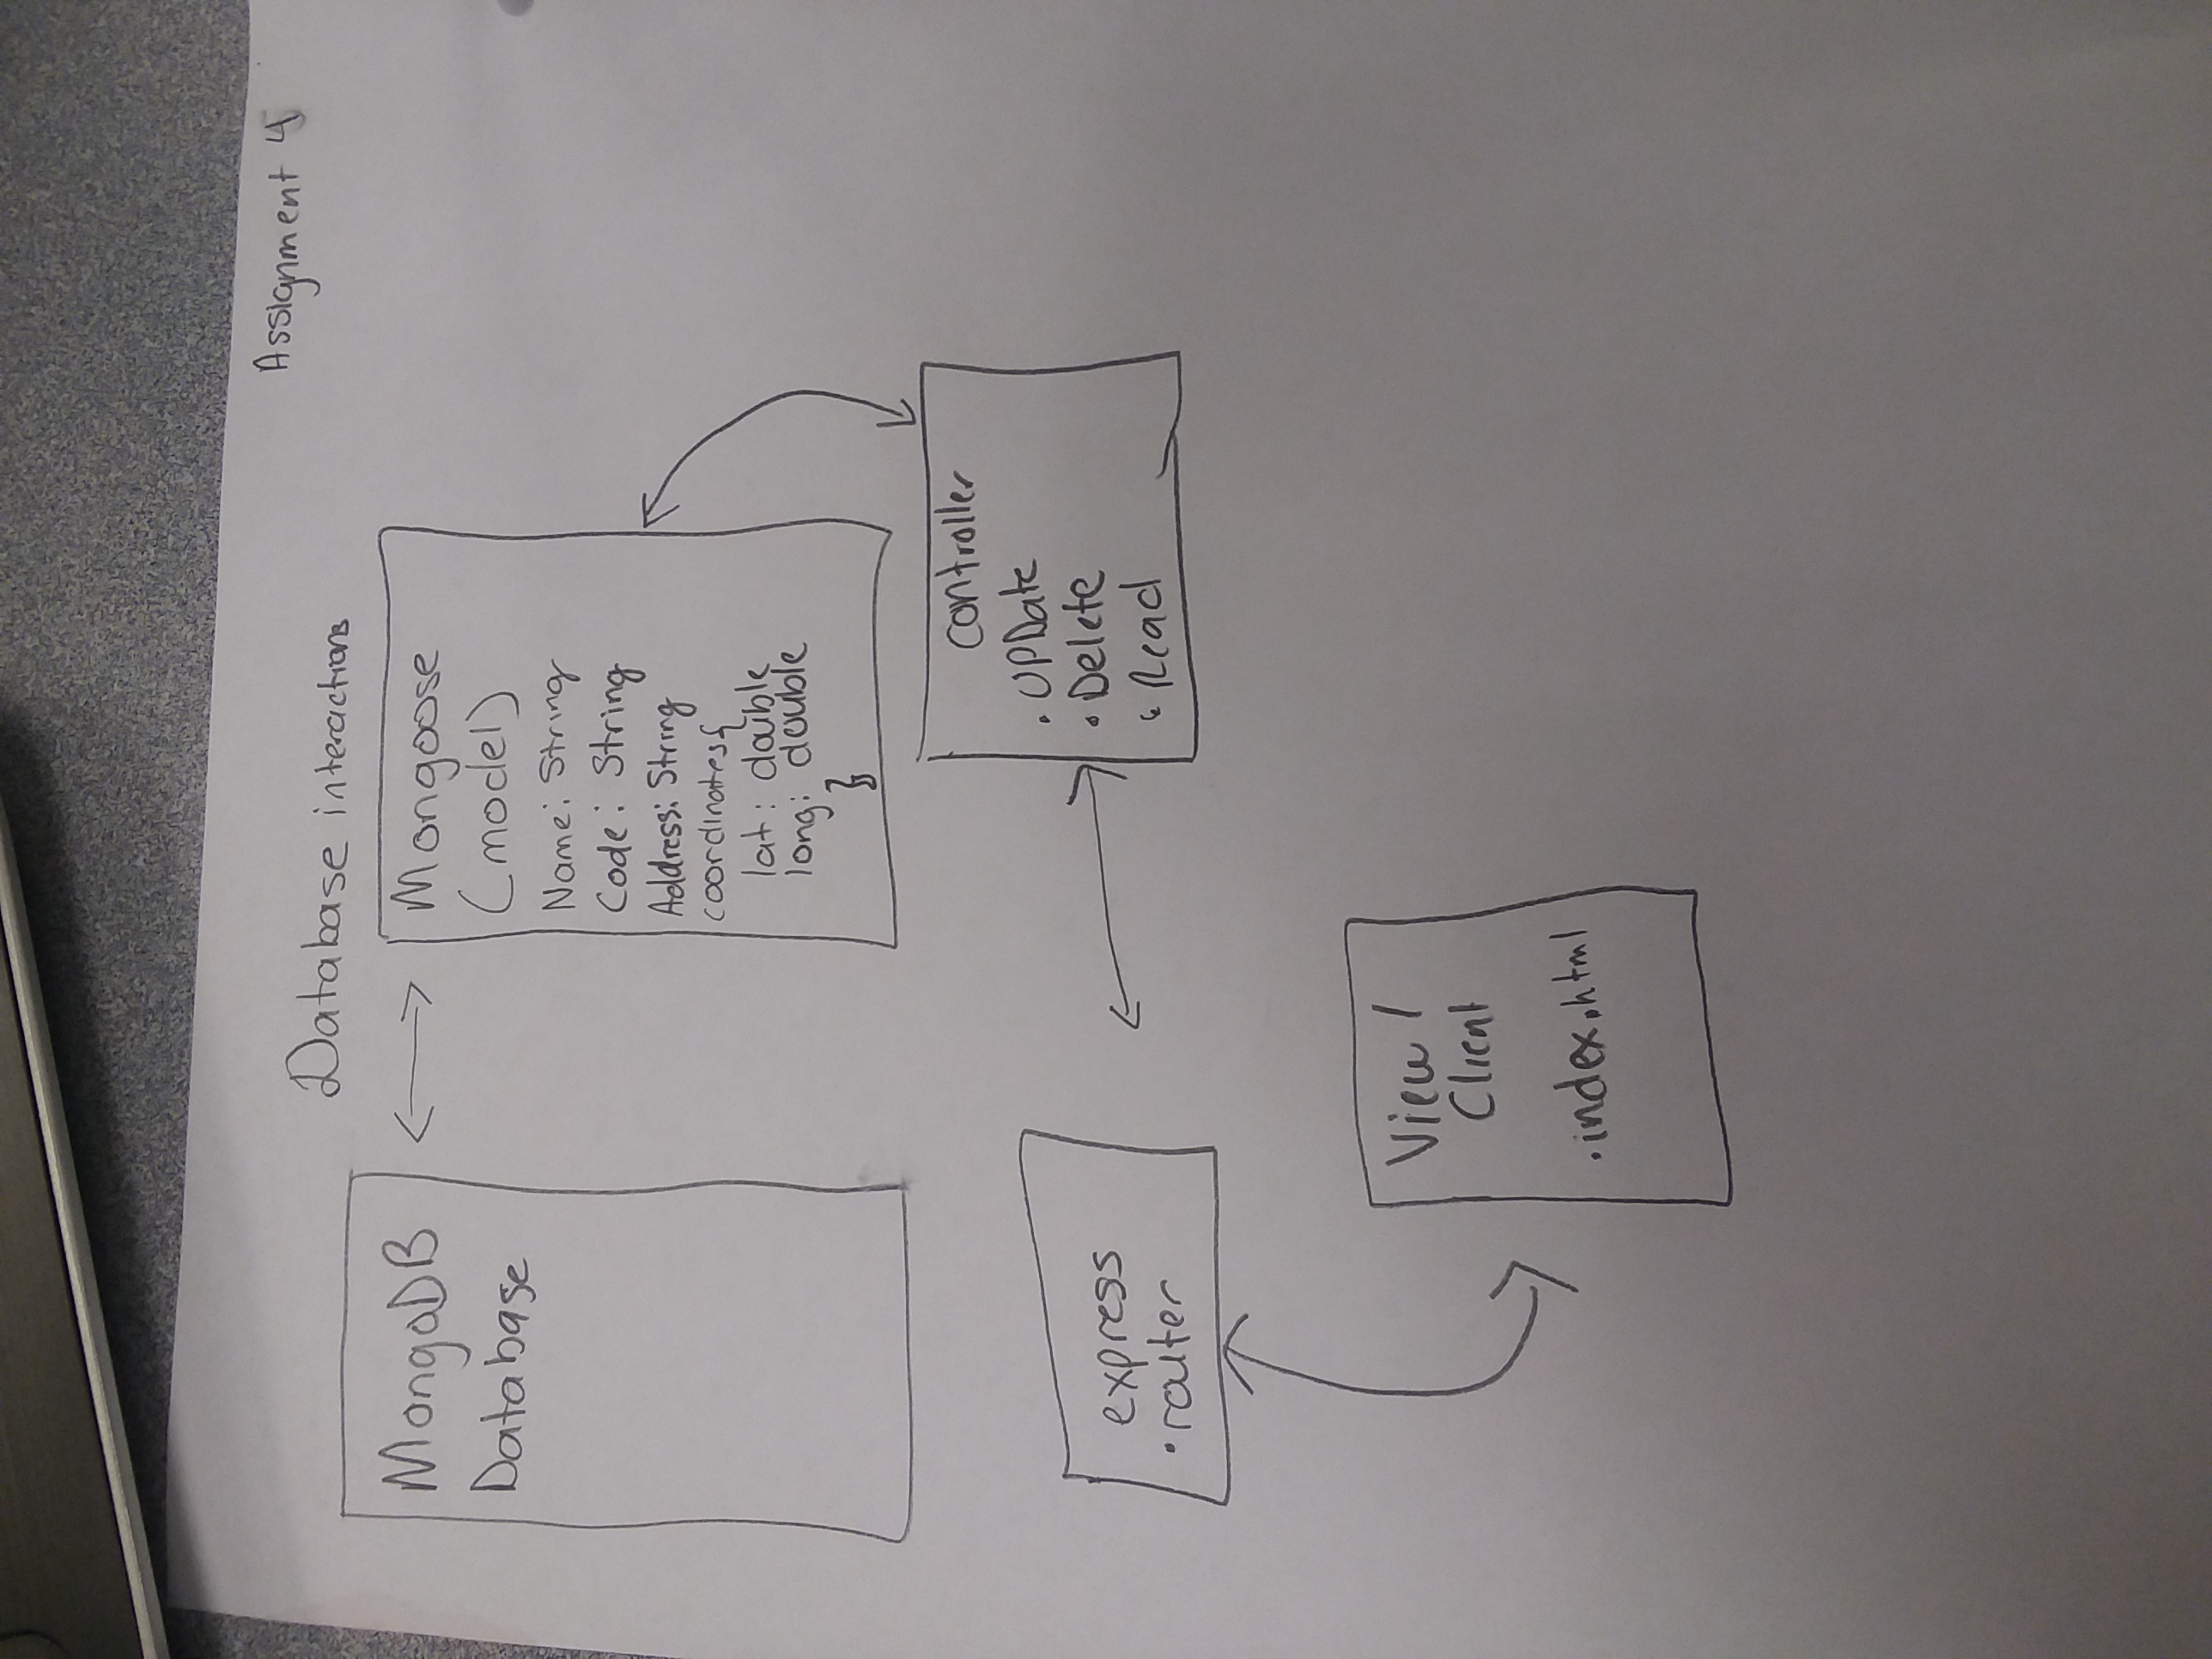 Assignment 4
Database interactions
MongoDB
Database
Mongoose
(model)
Name: String
Code: String
Address: String
coordinates{
lat: double
long: double
}
controller
. UPDate
. Delete
. Read
express
. router
View /
Client
. index.html